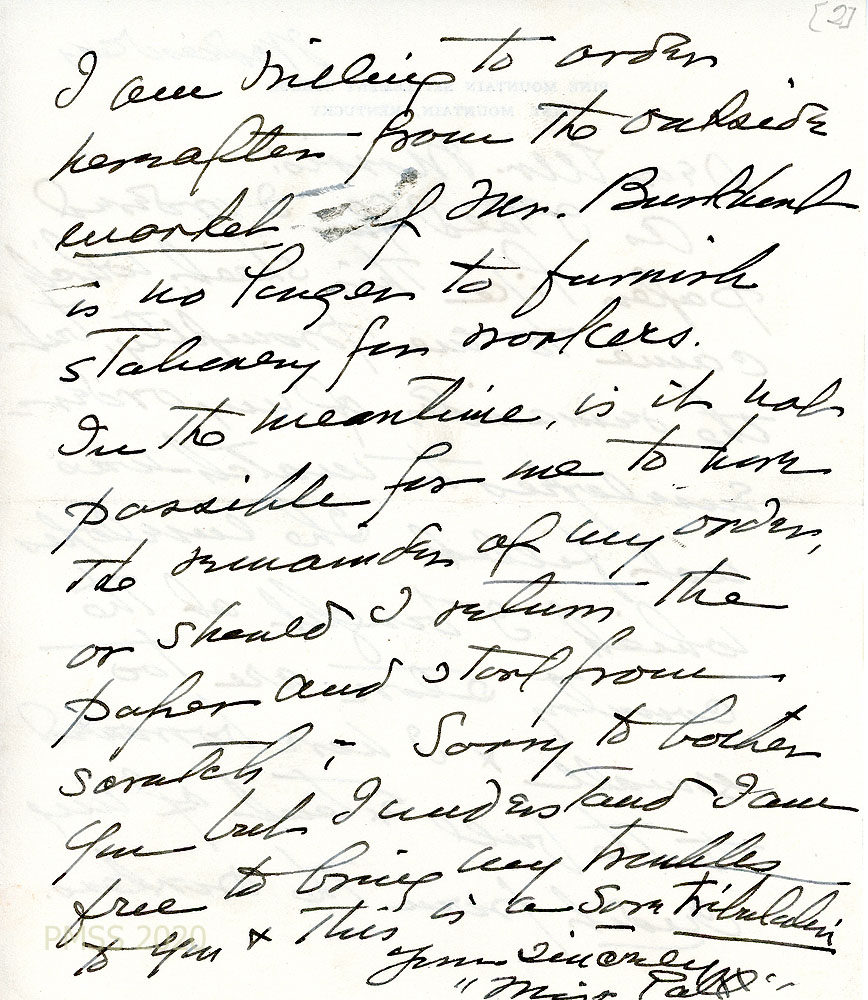 [2]
I am willing to order
hereafter from the outside
market if Mr. Burkhard
is no longer to furnish
stationery for workers.
In the meantime, is it not
possible for me to have
the remainder of my order,
or should I return the
paper and start from
scratch ? Sorry to bother
you but I understand I am
free to bring my troubles
to you & this is a sore tribulation
Yours sincerely
"Miss
PMSS 2020